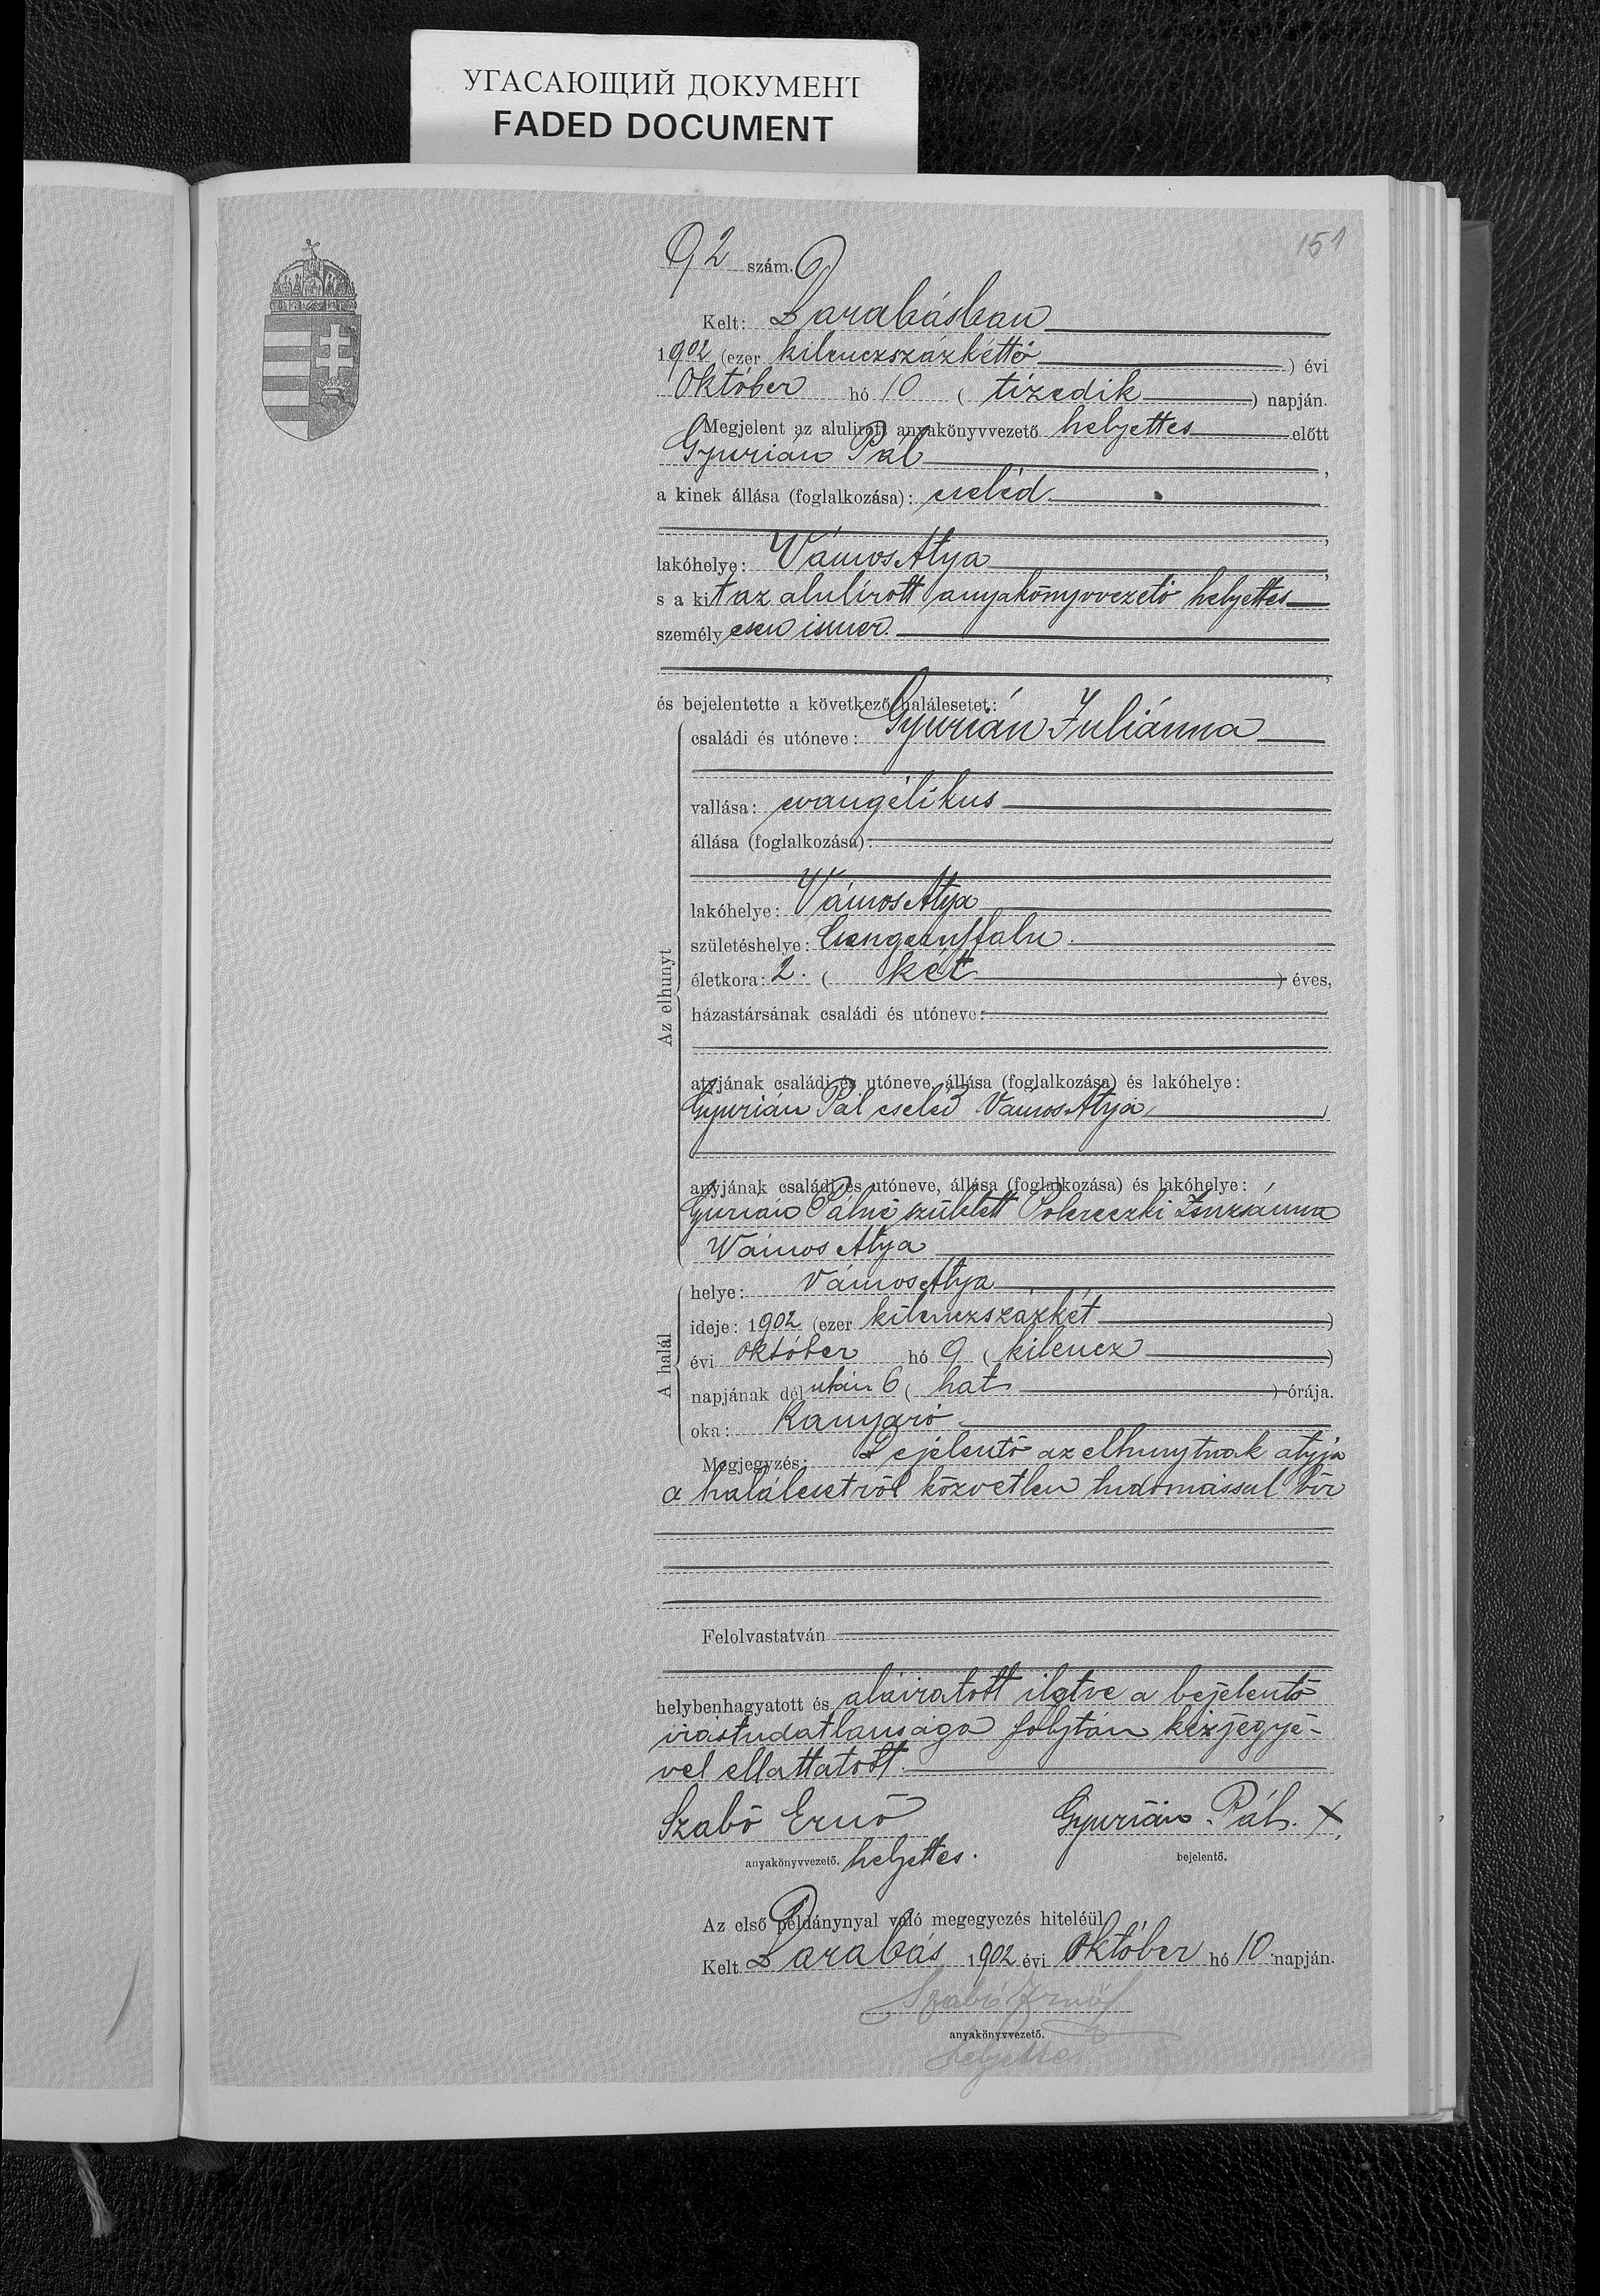 УГАСАЮЩИЙ ДОКУМЕНТ
FADED DOCUMENT
151
92 szám.
Kelt: Barabásban
1902 (ezer kilenczszázkettő ) évi
Október hó 10 ( tizedik ) napján.
Megjelent az alulirott anyakönyvvezető helyettes előtt
Gyurián Pál ,
a kinek állása (foglalkozása): cseléd
,
lakóhelye: Vámos Atya ,
s a kit az alulirott anyakönyvvezető helyettes
személyesen ismer.
,
és bejelentette a következő halálesetet:
Az elhunyt
családi és utóneve: Gyurián Juliánna
vallása: evangélikus
állása (foglalkozása):
lakóhelye: Vámos Atya
születéshelye:
életkora: 2. ( két ) éves,
házastársának családi és utóneve:
atyjának családi és utóneve, állása (foglalkozása) és lakóhelye:
Gyurián Pál cseléd Vámos Atya
anyjának családi és utóneve, állása (foglalkozása) és lakóhelye:
Gyurián Pálné született Zsuzsánna
Vámos Atya
A halál
helye: Vámos Atya
ideje: 1902 (ezer kilenczszázkét )
évi október hó 9 ( kilencz )
napjának délután 6 ( hat ) órája.
oka: Kanyaró
Megjegyzés: Bejelentő az elhunytnak atyja
a halálesetről közvetlen tudomással bir
Felolvastatván
helybenhagyatott és aláiratott iletve a bejelentő
irástudatlansága folytán kézjegyé-
vel ellattatott.
Szabó Ernő Gyurián Pál. X
anyakönyvvezető. helyettes. bejelentő.
Az első példánynyal való megegyezés hiteléül
Kelt Barabás 1902 évi Október hó 10 napján.
Szabó Ernő
anyakönyvvezető.
helyettes